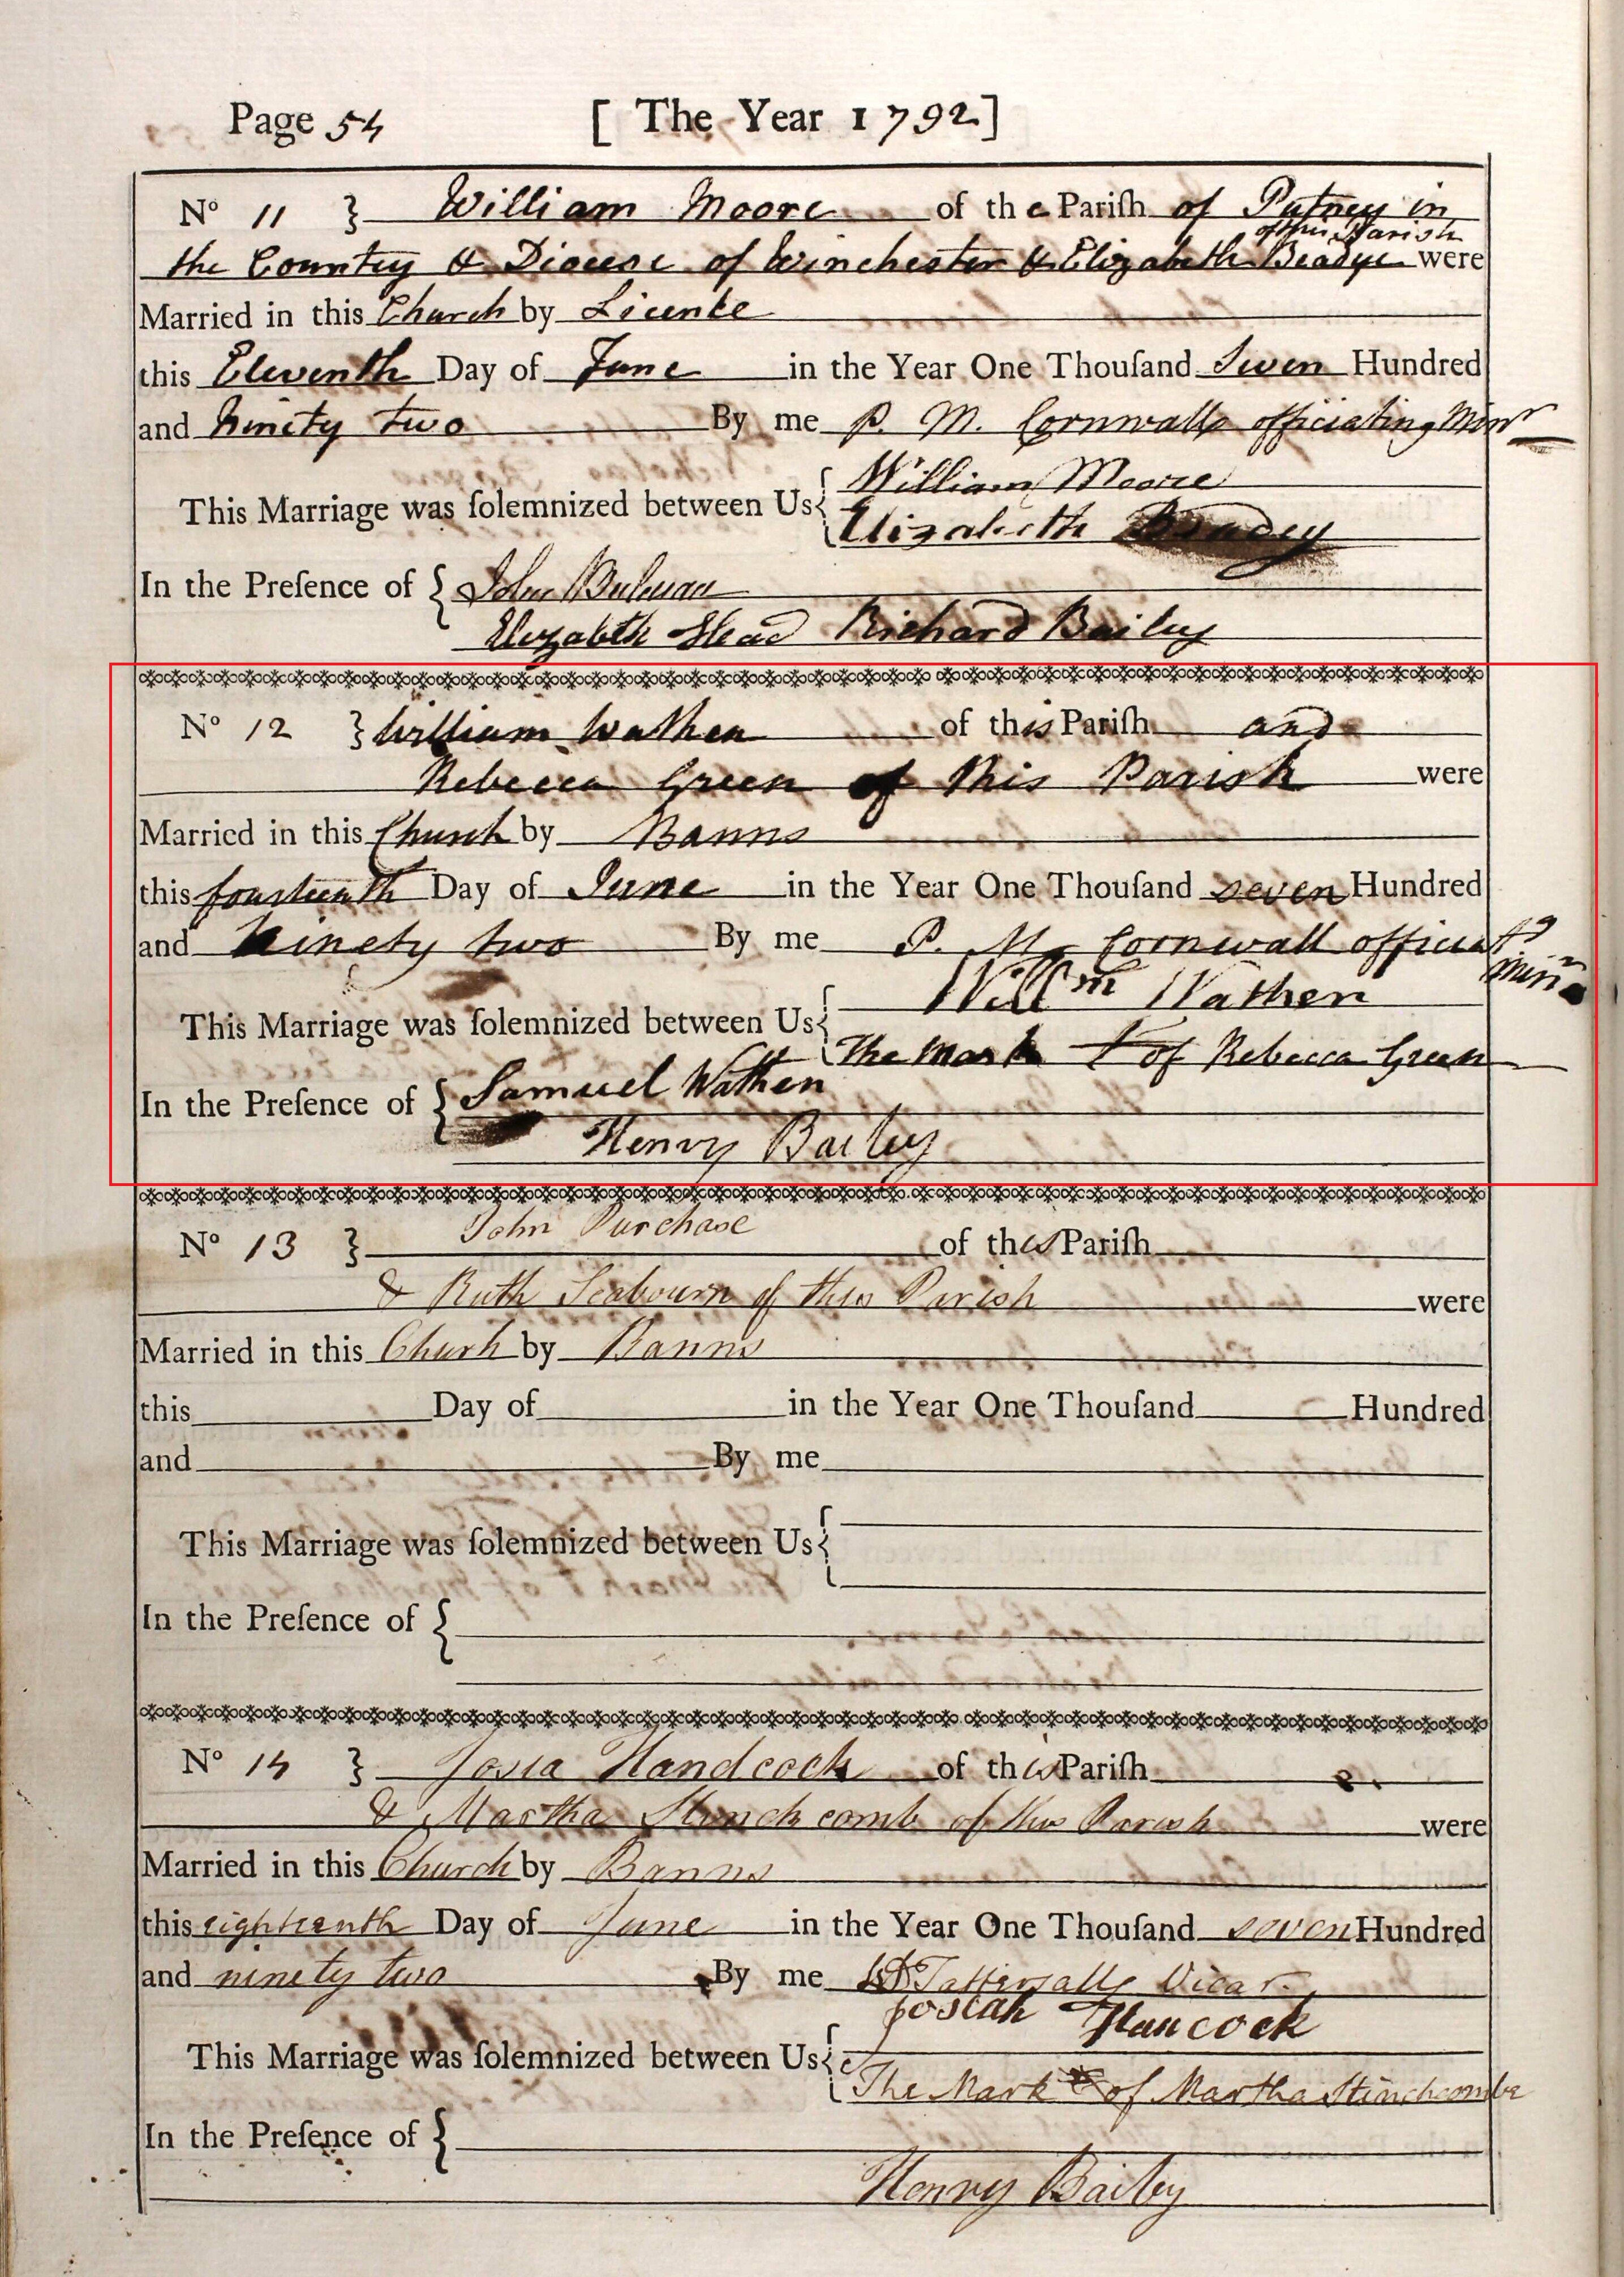 Page 54 [ The Year 1792]
Nº 11 } William Moore of the Pariſh of Putney in
of this Parish
the Country & Diocese of Winchester & Elizabeth were
Married in this Church by Licence
this Eleventh Day of June in the Year One Thouſand Seven Hundred
and Ninety two By me P. M. Cornwall officiating Minr
William Moore
This Marriage was ſolemnized between Us{
Elizabeth
In the Preſence of { John
Elizabeth Head Richard Bailey
Nº 12 } William Wathen of this Pariſh and
Rebecca Green of this Parish were
Married in this Church by Banns
this fourteenth Day of June in the Year One Thouſand seven Hundred
and Ninety two By me P. M. Cornwall officiatg
Minr
Willm Wathen
This Marriage was ſolemnized between Us{
The Mark + of Rebecca Green
Samuel Wathen
In the Preſence of {
Henry Bailey
John Purchase
Nº 13 } of this Pariſh
& Ruth Seabourn of this Parish were
Married in this Church by Banns
this Day of in the Year One Thouſand Hundred
and By me
This Marriage was ſolemnized between Us{
In the Preſence of {
Nº 14 } Josia Handcock of this Pariſh
& Martha Stinchcomb of this Parish were
Married in this Church by Banns
this eighteenth Day of June in the Year One Thouſand seven Hundred
and ninety two By me WD Tattersall Vicar.
Josiah Hancock
This Marriage was ſolemnized between Us{
The Mark of Martha Stinchcombe
In the Preſence of {
Henry Bailey